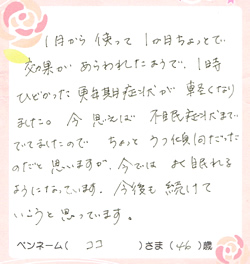 1月から使って1ヶ月ちょっとで
効果があらわれたようで、1時
ひどかった更年期症状が軽くなり
ました。今思えば不眠症状まで
でてましたので ちょっとうつ傾向だった
のだと思いますが、今では よく眠れる
ようになっています。今後も続けて
いこうと思っています。
ペンネーム( ココ )さま(46)歳